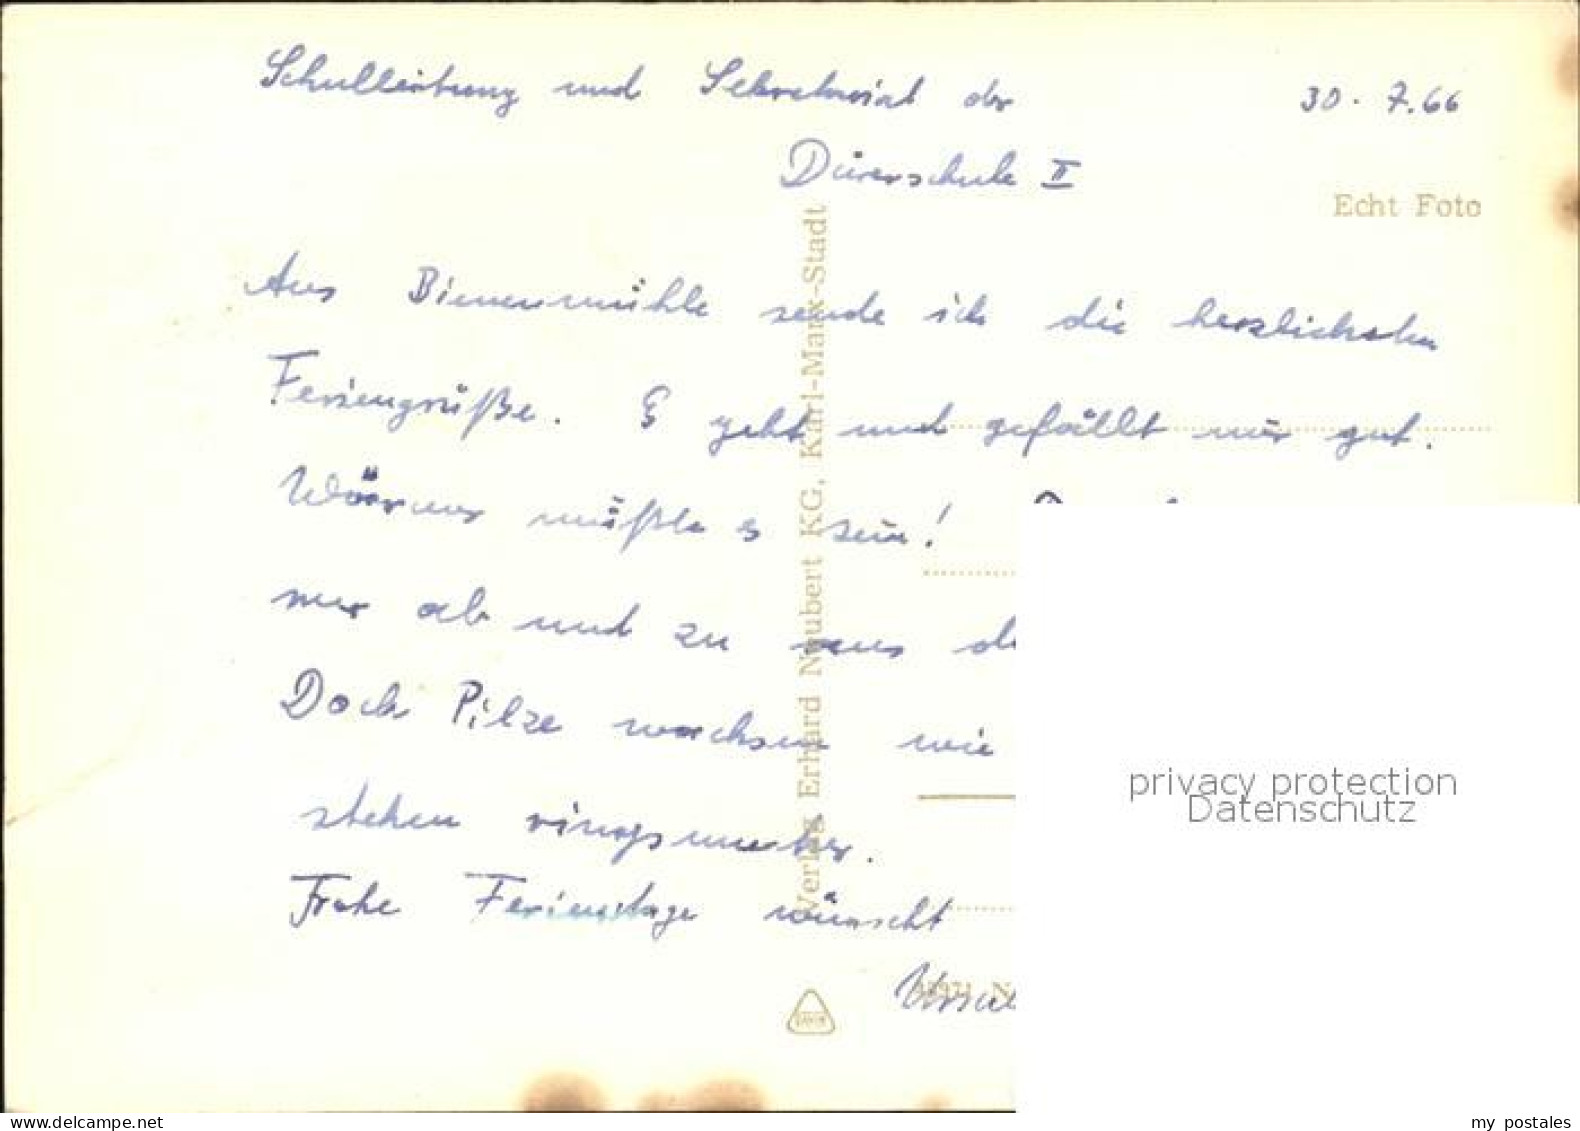 Schulleitung und Sekretariat der
30. 7. 66
Dürerschule II
Echt Foto
Aus Bienenmühle sende ich die herzlichsten
Feriengrüße. Es geht und gefällt mir gut.
Wärmer müßte es sein!
nur ab und zu aus
Doch Pilze wachsen wie
stehen ringsumher.
Frohe Ferientage wünscht
Verlag Erhard Neubert KG, Karl-Marx-Stadt
privacy protection
Datenschutz
www.delcampe.net
my postales